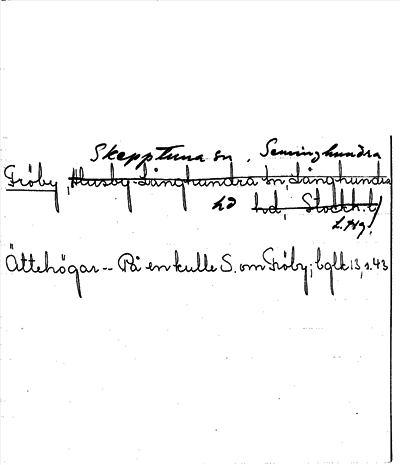 Skepptuna sn, Seminghundra
Fröby, Husby-Långhundra sn, Långhundra
hd hd, Stockh. l.
L. Hg.
Ättehögar -- På en kulle S. om Fröby; bglt 13, s. 43